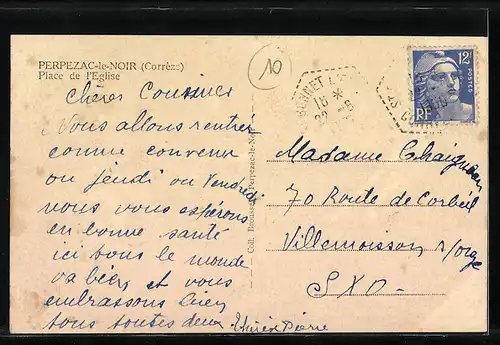 PERPEZAC-le-NOIR (Corrèze)
Place de l'Eglise
10
12F
POSTES
RF
18 *
22 -8
chères Cousines
Nous allons rentrer
comme convenu
ou jeudi ou vendredi
nous vous espérons
en bonne santé
ici tous le monde
va bien et vous
embrassons bien
tous toutes deux.
Pierre
Perpezac-le-Noir
Madame
70 Route de Corbeil
Villemoisson s/orge
S X O -